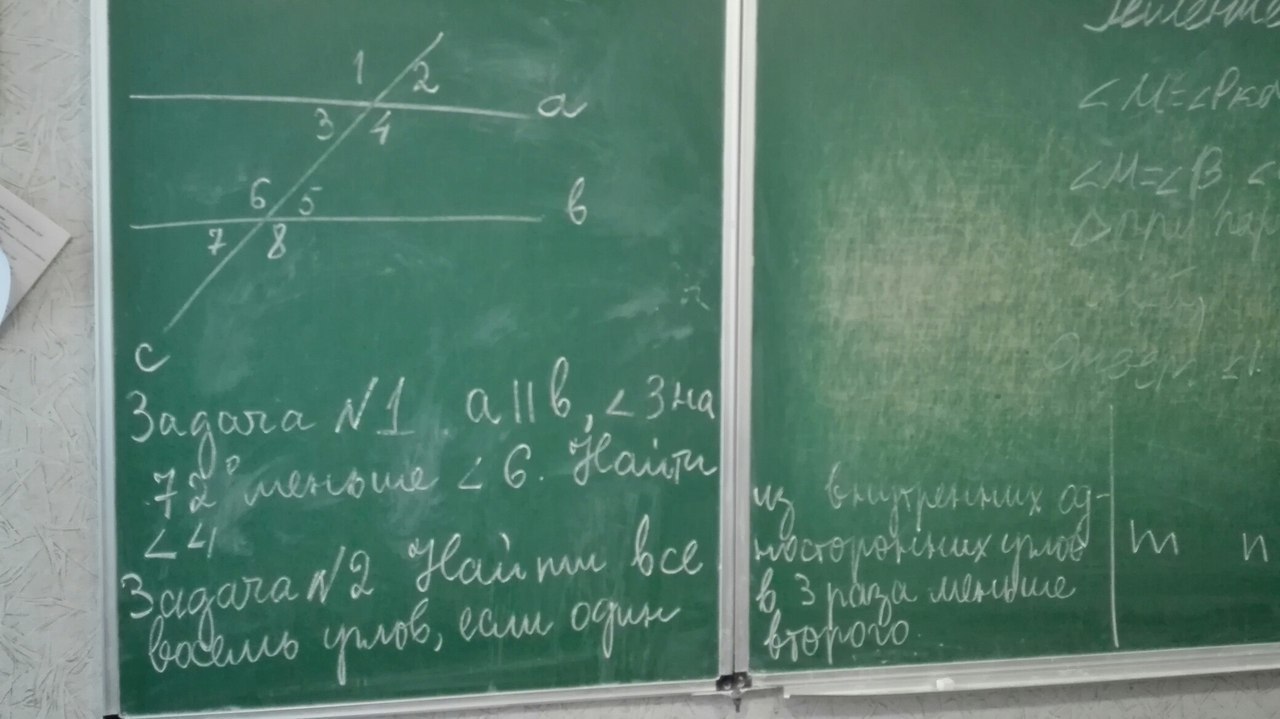 1
2
3
4
a
6
5
в
7
8
c
Задача №1. a||в, <3 на
72° меньше <6. Найти
<4
Задача №2 Найти все
восемь углов, если один
<M=<P
<M=<B, <
из внутренних од-
носторонних углов
в 3 раза меньше
второго.
m n